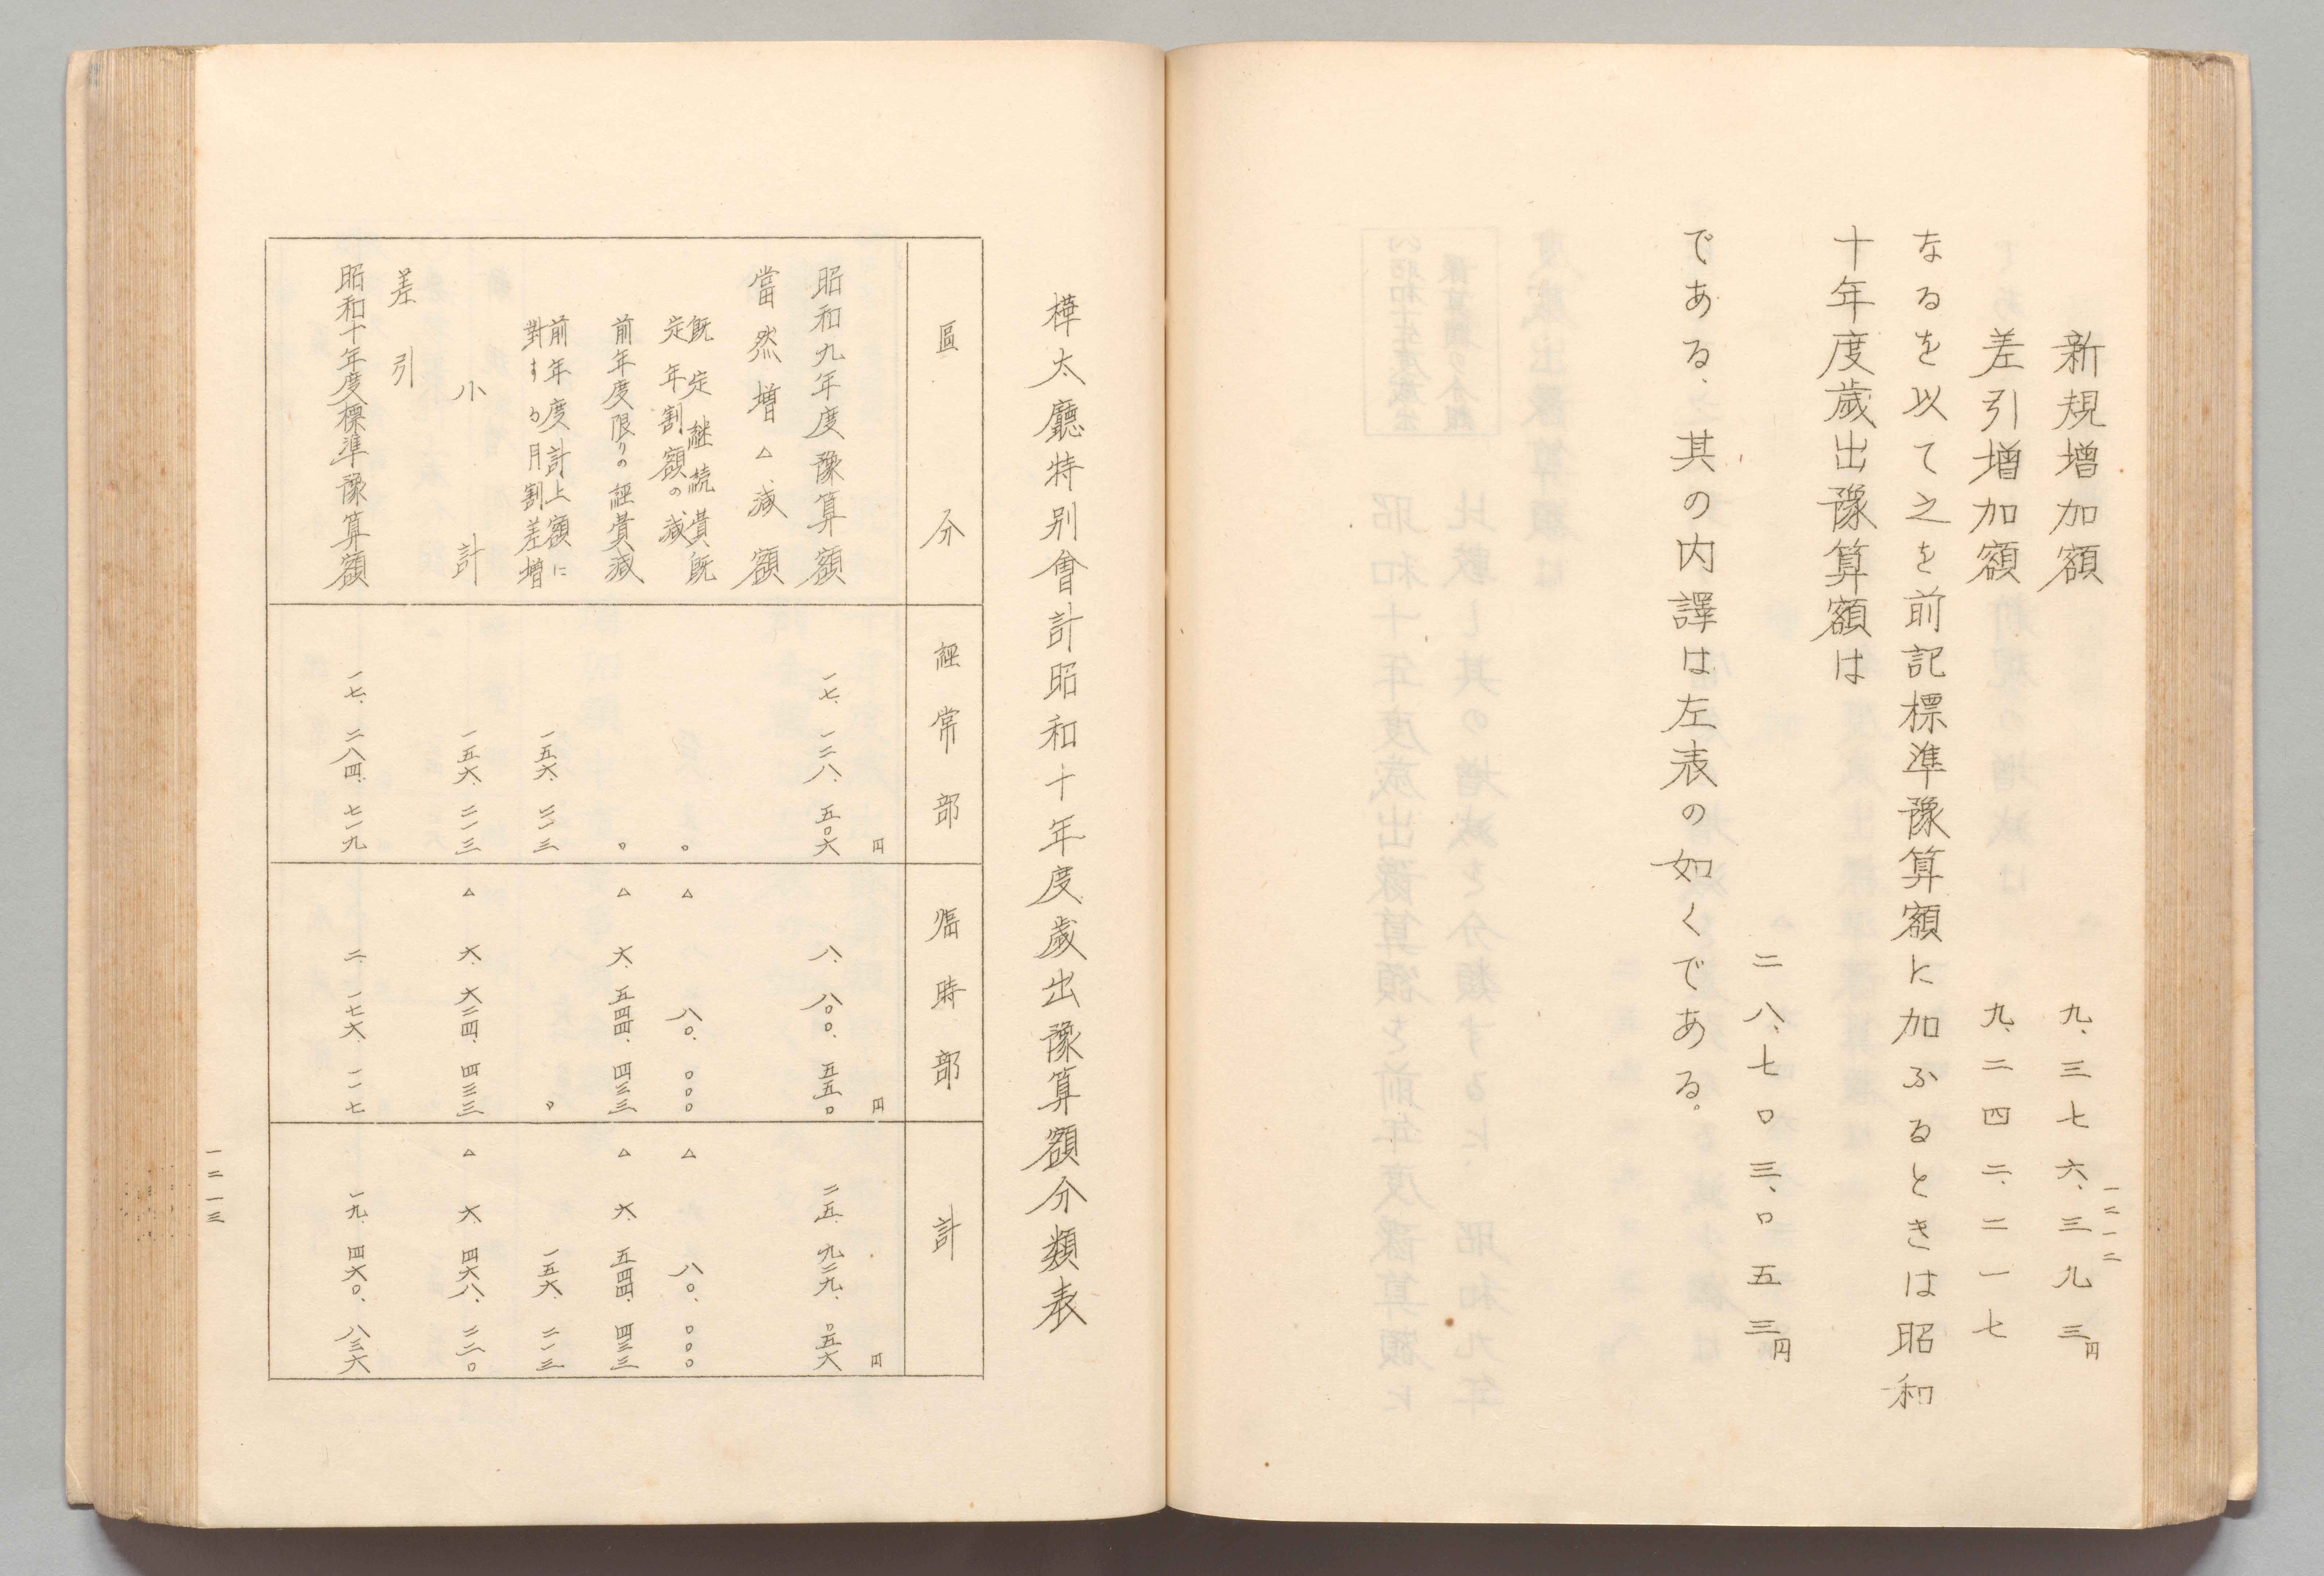 一二一二
新規増加額 九、三七六、三九三円
差引増加額 九、二四二、二一七
なるを以て之を前記標準豫算額に加ふるときは昭和
十年度歳出豫算額は
二八、七〇三、〇五三円
である、其の内譯は左表の如くである。
樺太廳特別會計昭和十年度歳出豫算額分類表
區分 經常部 臨時部 計
円 円 円
昭和九年度豫算額 一七、一二八、五〇六 八、八〇〇、五五〇 二五、九二九、〇五六
當然増△減額
既定継続費既
定年割額の減 〇 △ 八〇、〇〇〇 △ 八〇、〇〇〇
前年度限りの經費減 〇 △ 六、五四四、四三三 △ 六、五四四、四三三
前年度計上額に
對する月割差増 一五六、二一三 〇 一五六、二一三
小計 一五六、二一三 △ 六、六二四、四三三 △ 六、四六八、二二〇
差引
昭和十年度標準豫算額 一七、二八四、七一九 二、一七六、一一七 一九、四六〇、八三六
一二一三